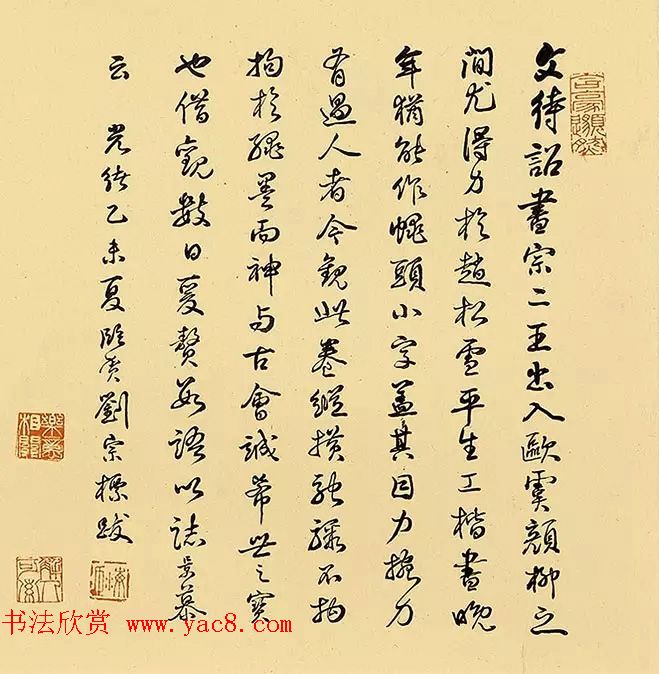 文待詔書宗二王出入歐虞顏柳之
間尤得力於趙松雪平生工楷書晚
年猶能作蠅頭小字蓋其目力擥力
有過人者今觀此卷縱橫馳驟不拘
拘於繩墨而神與古會誠希世之寶
也借觀數日爰贅數語以誌景慕
云 光緒乙未夏臨貴劉宗標跋
書法欣赏 www.yac8.com